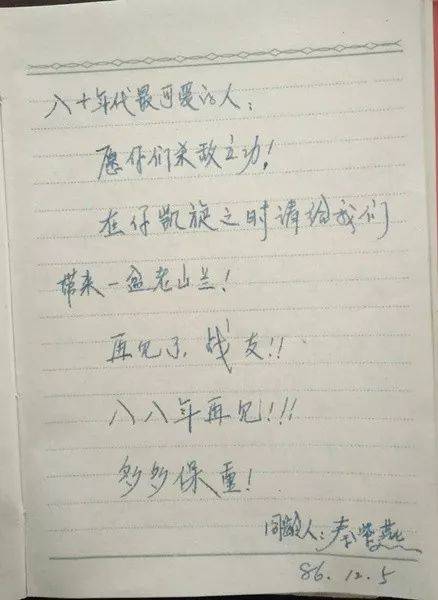 八十年代最可爱的人:
愿你们杀敌立功!
在仔凯旋之时请给我们
带来一盆老山兰!
再见了,战友!!
八八年再见!!!
多多保重!
同龄人:秦紫燕
86.12.5